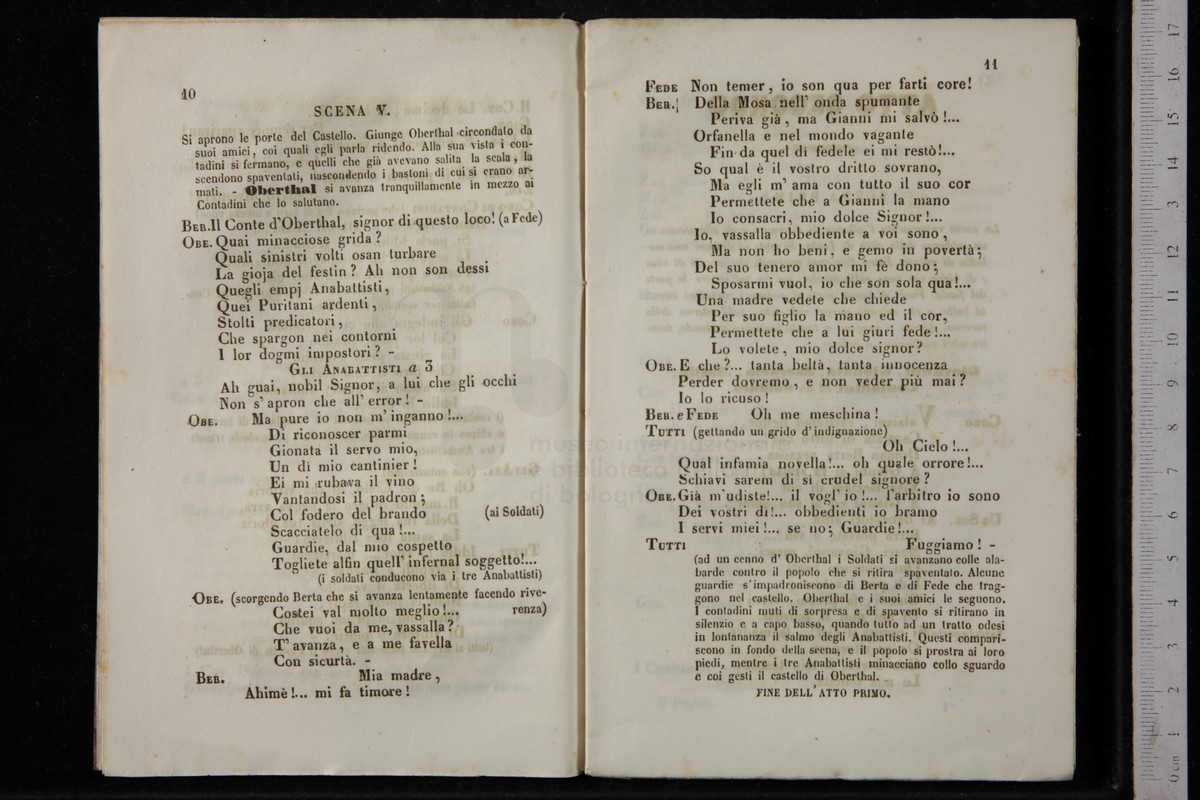 10
SCENA V.
Si aprono le porte del Castello. Giunge Oberthal circondato da
suoi amici, coi quali egli parla ridendo. Alla sua vista i con-
tadini si fermano, e quelli che già avevano salita la scala, la
scendono spaventati, nascondendo i bastoni di cui si erano ar-
mati. - Oberthal si avanza tranquillamente in mezzo ai
Contadini che lo salutano.
BER. Il Conte d'Oberthal, signor di questo loco! (a Fede)
OBE. Quai minacciose grida?
Quali sinistri volti osan turbare
La gioja del festin? Ah non son dessi
Quegli empj Anabattisti,
Quei Puritani ardenti,
Stolti predicatori,
Che spargon nei contorni
I lor dogmi impostori? -
GLI ANABATTISTI a 3
Ah guai, nobil Signor, a lui che gli occhi
Non s'apron che all'error! -
OBE. Ma pure io non m'inganno!...
Di riconoscer parmi
Gionata il servo mio,
Un dì mio cantinier!
Ei mi rubava il vino
Vantandosi il padron;
Col fodero del brando (ai Soldati)
Scacciatelo di qua!...
Guardie, dal mio cospetto
Togliete alfin quell'infernal soggetto!...
(i soldati conducono via i tre Anabattisti)
OBE. (scorgendo Berta che si avanza lentamente facendo rive-
Costei val molto meglio!... renza)
Che vuoi da me, vassalla?
T'avanza, e a me favella
Con sicurtà. -
BER. Mia madre,
Ahimè!... mi fa timore!
11
FEDE Non temer, io son qua per farti core!
BER. Della Mosa nell'onda spumante
Periva già, ma Gianni mi salvò!...
Orfanella e nel mondo vagante
Fin da quel dì fedele ei mi restò!...
So qual è il vostro dritto sovrano,
Ma egli m'ama con tutto il suo cor
Permettete che a Gianni la mano
Io consacri, mio dolce Signor!...
Io, vassalla obbediente a voi sono,
Ma non ho beni, e gemo in povertà;
Del suo tenero amor mi fè dono;
Sposarmi vuol, io che son sola qua!...
Una madre vedete che chiede
Per suo figlio la mano ed il cor,
Permettete che a lui giuri fede!...
Lo volete, mio dolce signor?
OBE. E che?... tanta beltà, tanta innocenza
Perder dovremo, e non veder più mai?
Io lo ricuso!
BER. e FEDE Oh me meschina!
TUTTI (gettando un grido d'indignazione)
Oh Cielo!...
Qual infamia novella!... oh quale orrore!...
Schiavi sarem di sì crudel signore?
OBE. Già m'udiste!... il vogl'io!... l'arbitro io sono
Dei vostri dì!... obbedienti io bramo
I servi miei!... se no; Guardie!...
TUTTI Fuggiamo! -
(ad un cenno d'Oberthal i Soldati si avanzano colle ala-
barde contro il popolo che si ritira spaventato. Alcune
guardie s'impadroniscono di Berta e di Fede che trag-
gono nel castello. Oberthal e i suoi amici le seguono.
I contadini muti di sorpresa e di spavento si ritirano in
silenzio e a capo basso, quando tutto ad un tratto odesi
in lontananza il salmo degli Anabattisti. Questi compari-
scono in fondo della scena, e il popolo si prostra ai loro
piedi, mentre i tre Anabattisti minacciano collo sguardo
e coi gesti il castello di Oberthal.
FINE DELL'ATTO PRIMO.
museo internazionale
e biblioteca
di bologna
0 cm 1 2 3 4 5 6 7 8 9 10 11 12 13 14 15 16 17